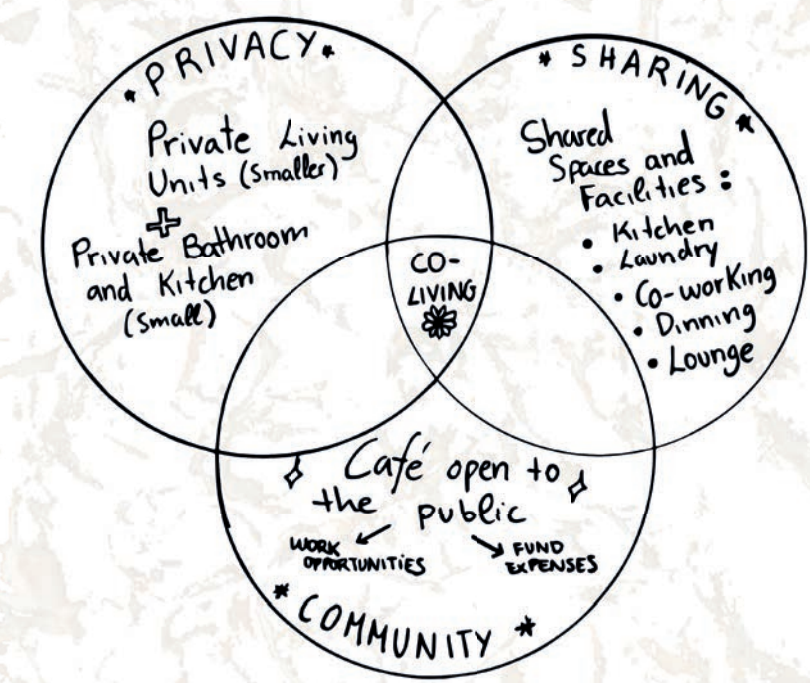 PRIVACY
Private Living
Units (smaller)
Private Bathroom
and Kitchen
(small)
SHARING
Shared
Spaces and
Facilities:
• Kitchen
• Laundry
• Co-working
• Dinning
• Lounge
CO-
LIVING
Café open to
the public
WORK
OPPORTUNITIES
FUND
EXPENSES
COMMUNITY